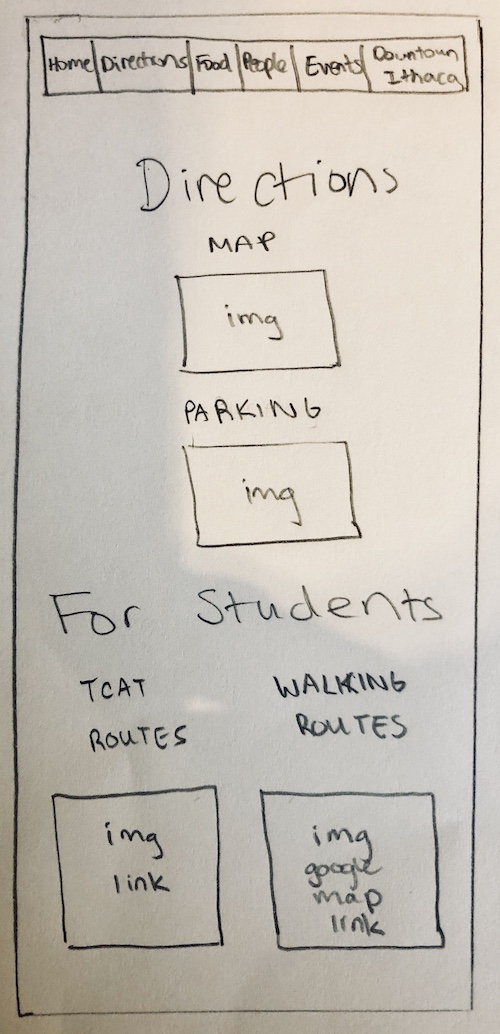 Home Directions Food People Events Downtown
Ithaca
Directions
MAP
img
PARKING
img
For Students
TCAT
ROUTES
WALKING
ROUTES
img
link
img
google
map
link